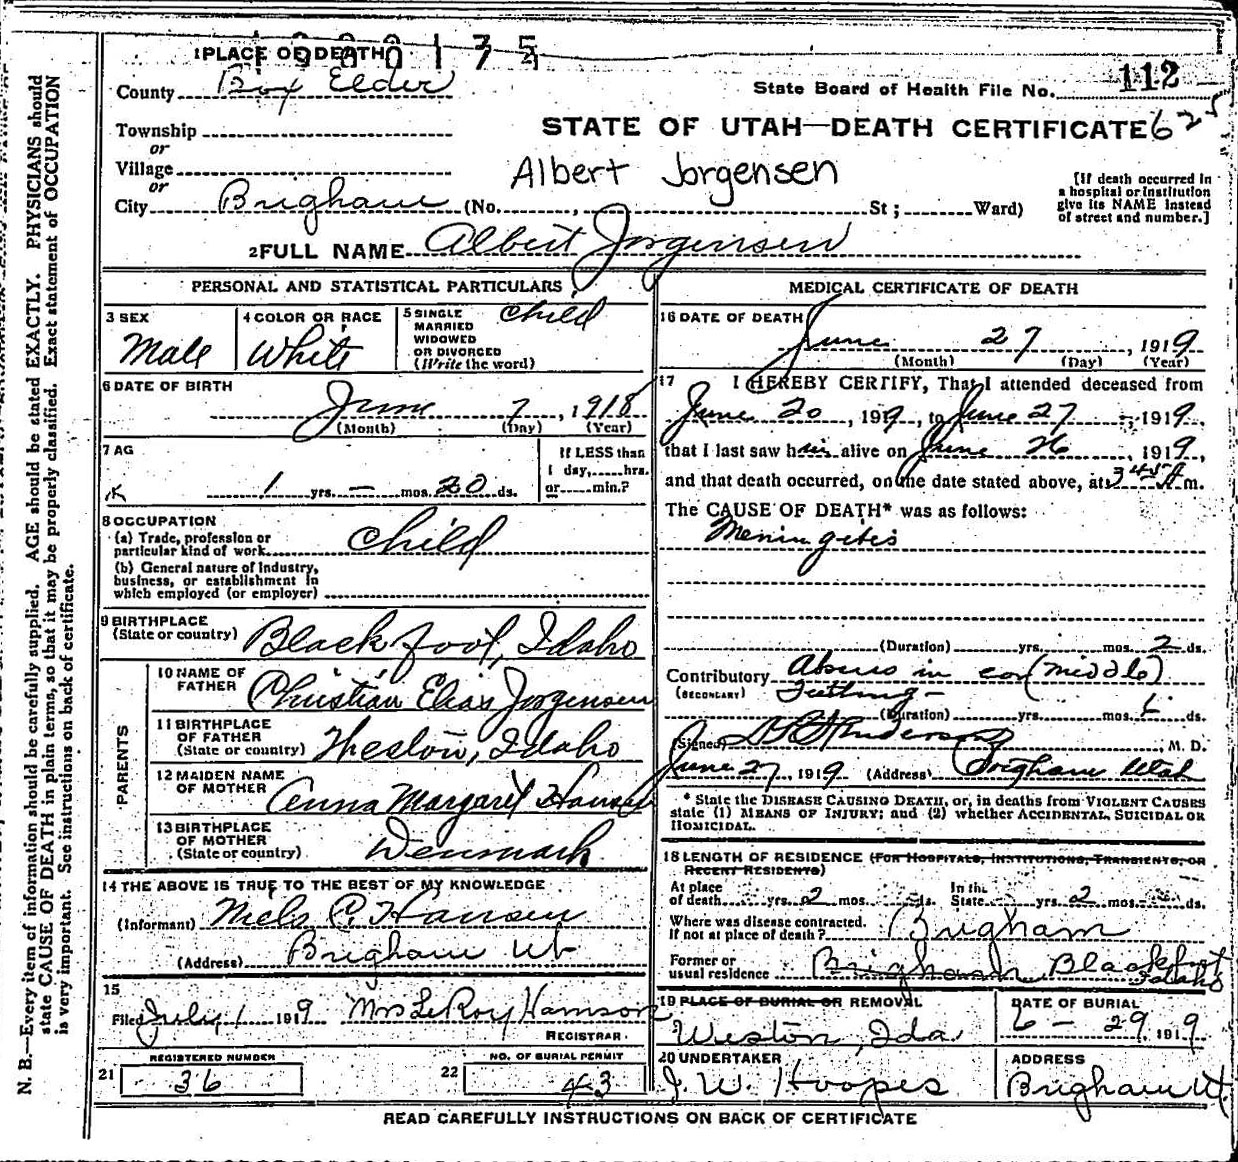 1 PLACE OF DEATH
1900175
County Box Elder
State Board of Health File No. 112
Township
or
STATE OF UTAH—DEATH CERTIFICATE 625
Village
or
Albert Jorgensen
City Brigham (No. , St; Ward)
[If death occurred in
a hospital or institution
give its NAME instead
of street and number.]
2 FULL NAME Albert Jorgensen
PERSONAL AND STATISTICAL PARTICULARS
3 SEX
Male
4 COLOR OR RACE
White
5 SINGLE
MARRIED
WIDOWED
OR DIVORCED
(Write the word)
child
6 DATE OF BIRTH
June 7, 1918
(Month) (Day) (Year)
7 AG
1 yrs. — mos. 20 ds.
If LESS than
1 day, hrs.
or min.?
8 OCCUPATION
(a) Trade, profession or
particular kind of work child
(b) General nature of Industry,
business, or establishment in
which employed (or employer)
9 BIRTHPLACE
(State or country) Blackfoot, Idaho
PARENTS
10 NAME OF
FATHER Christian Elias Jorgensen
11 BIRTHPLACE
OF FATHER
(State or country) Weston, Idaho
12 MAIDEN NAME
OF MOTHER Anna Margaret Hansen
13 BIRTHPLACE
OF MOTHER
(State or country) Denmark
14 THE ABOVE IS TRUE TO THE BEST OF MY KNOWLEDGE
(Informant) Niels C. Hansen
(Address) Brigham Ut
15
Filed July 1 1919 Mrs LeRoy Hamson
REGISTRAR
REGISTERED NUMBER
21 36
NO. OF BURIAL PERMIT
22 43
MEDICAL CERTIFICATE OF DEATH
16 DATE OF DEATH
June 27, 1919
(Month) (Day) (Year)
17 I HEREBY CERTIFY, That I attended deceased from
June 20, 1919, to June 27, 1919,
that I last saw him alive on June 26, 1919,
and that death occurred, on the date stated above, at 3 45 A m.
The CAUSE OF DEATH* was as follows:
Meningitis
(Duration) yrs. mos. 2 ds.
Contributory Abcess in ear (middle)
(SECONDARY) Teething -
(Duration) yrs. mos. ds.
(Signed) Anderson, M. D.
June 27, 1919 (Address) Brigham Utah
* State the DISEASE CAUSING DEATH, or, in deaths from VIOLENT CAUSES
state (1) MEANS OF INJURY; and (2) whether ACCIDENTAL, SUICIDAL OR
HOMICIDAL.
18 LENGTH OF RESIDENCE (FOR HOSPITALS, INSTITUTIONS, TRANSIENTS, OR
RECENT RESIDENTS)
At place
of death yrs. 2 mos. ds.
In the
State yrs. 2 mos. ds.
Where was disease contracted.
If not at place of death? Brigham
Former or
usual residence Brigham Blackfoot
Idaho
19 PLACE OF BURIAL OR REMOVAL
Weston, Ida
DATE OF BURIAL
6 - 29, 1919
20 UNDERTAKER
J. W. Hoopes
ADDRESS
Brigham Ut.
READ CAREFULLY INSTRUCTIONS ON BACK OF CERTIFICATE
N. B.—Every item of information should be carefully supplied. AGE should be stated EXACTLY. PHYSICIANS should
state CAUSE OF DEATH in plain terms, so that it may be properly classified. Exact statement of OCCUPATION
is very important. See instructions on back of certificate.